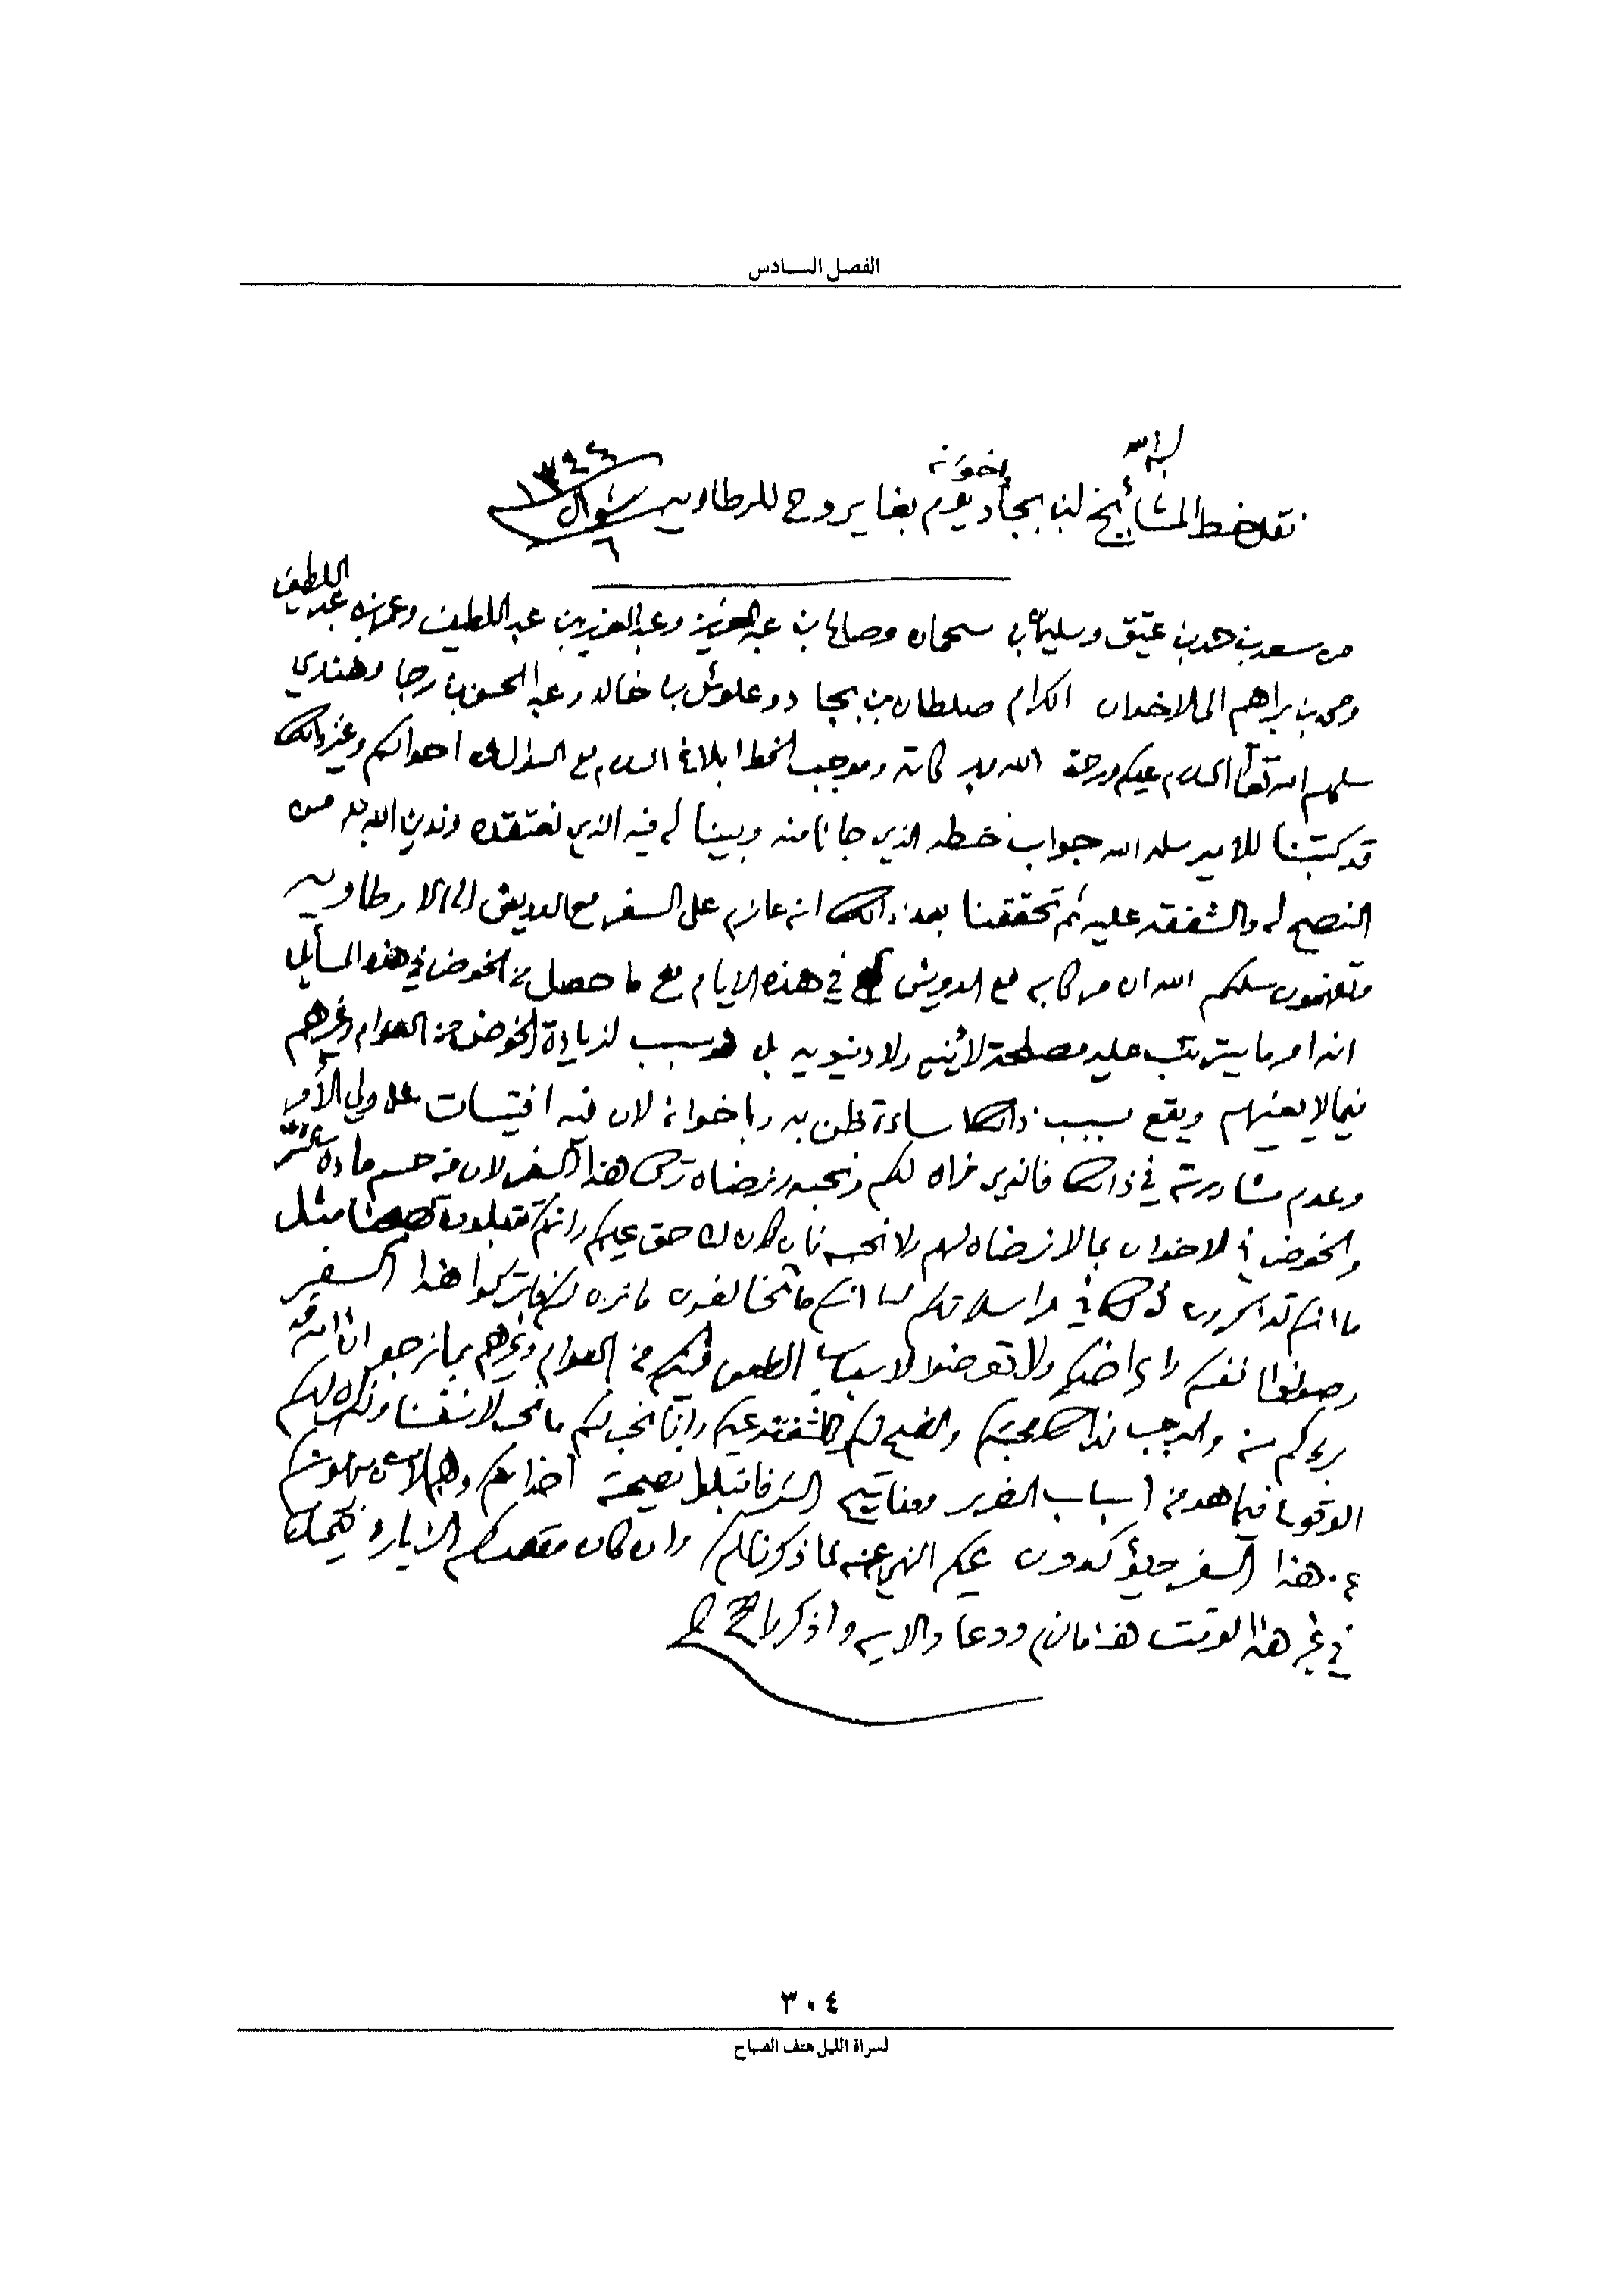 الفصل السادس
بسم الله
اخوته
نقل خط المشايخ لبن بجاد يوم بغا يروح للرطاويه شوال ١٣٤٤
٦
من سعد بن حمد بن عتيق وسليمان بن سحمان وصالح بن عبد العزيز وعبد العزيز بن عبد اللطيف وعمر بن عبد اللطيف
ومحمد بن براهم الى الاخوان الكرام صلطان بن بجاد وعلوش بن خالد وعبد المحسن بن رجا وهندي
سلمهم الله تعالى السلام عليكم ورحمة الله وبركاته وموجب الخط ابلاغ السلام مع السؤال عن احوالكم وغير ذالك
قد كتبنا للامير سلمه الله جواب خطه الذي جانا منه وبينا له فيه الذي نعتقده وندين الله به من
النصح له والشفقه عليه ثم تحققنا بعد ذالك انه عازم على السفر مع الدويش الى الارطاويه
وتفهمون سلمكم الله ان مركابه مع الدويش في هذه الايام مع ما حصل من الخوض في هذه المسأيل
انه امر ما يترتب عليه مصلحة لا دينيه ولا دنيويه بل هو سبب لزيادة الخوض من العوام وغيرهم
فيما لا يعنيهم ويقع بسبب ذالك اساءة ظن به وباخوانه لان فيه افتيات على ولي الأمر
وعدم مشاورته في ذالك فالذي نراه لكم ونحبه ونرضاه ترك هذا السفر لان فيه حسم مادة الشر
والخوض في الاخوان بما لا نرضاه لهم ولا نحبه فان كان لنا حق عليكم وانكم تقبلون نصحنا مثل
ما انتم تذكرون ذالك في مراسلاتكم لنا انكم ما تخالفون ما نراه لكم فاتركوا هذا السفر
وصونوا انفسكم واعراضكم ولا تعرضوا لاسباب الطعن فيكم من العوام وغيرهم بما نرجوا ان الله قد
برءكم منه والموجب لذالك محبتكم والنصح لكم والشفقه عليكم وانا نحب لكم ما نحب لانفسنا ونكره لكم
الوقوع فيما هو من اسباب الضرر ومفاتيح الشر فاقبلوا نصيحة اخوانكم
عن هذا السفر ويؤكدون عليكم النهي عنه لما ذكرنا لكم وان كان مقصدكم الزياره فيمكن
في غير هذا الوقت هذا مالزم ودعا والايه واذكروا
٣٠٤
لسراة الليل هتف الصباح